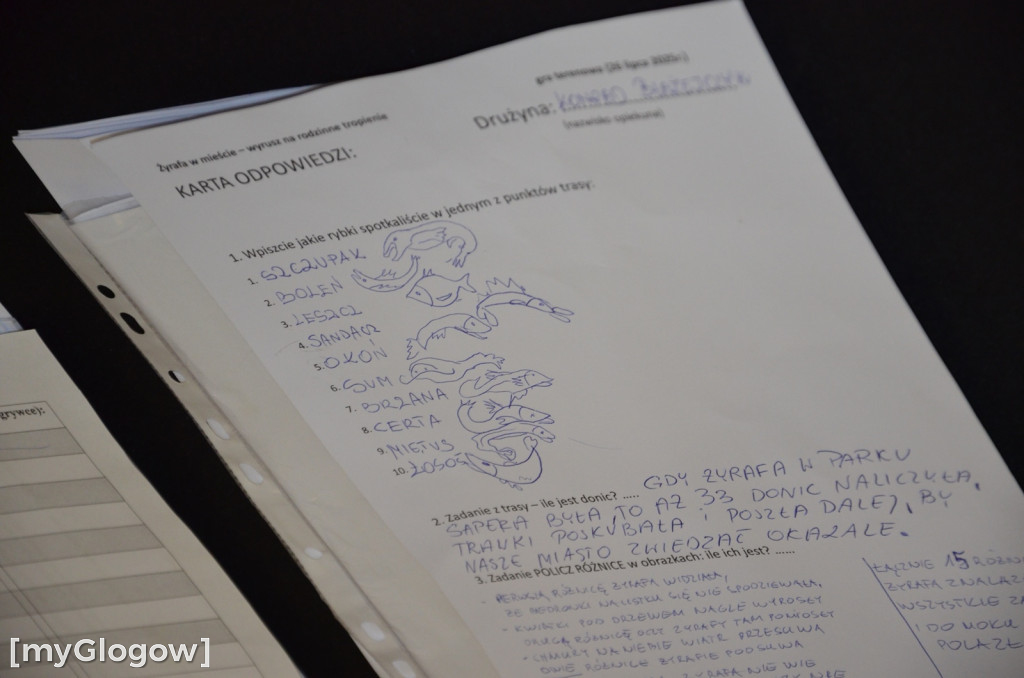 gra terenowa (26 lipca 2025r.)
Drużyna: KONRAD BŁAŻEJCZYK
(nazwisko opiekuna)
Żyrafa w mieście – wyrusz na rodzinne tropienie
KARTA ODPOWIEDZI:
1. Wpiszcie jakie rybki spotkaliście w jednym z punktów trasy:
1. SZCZUPAK
2. BOLEŃ
3. LESZCZ
4. SANDACZ
5. OKOŃ
6. SUM
7. BRZANA
8. CERTA
9. MIĘTUS
10. ŁOSOŚ
2. Zadanie z trasy – ile jest donic? ..... GDY ŻYRAFA W PARKU
SAPERA BYŁA TO AŻ 33 DONIC NALICZYŁA,
TRAWKI POSKUBAŁA I POSZŁA DALEJ, BY
NASZE MIASTO ZWIEDZAĆ OKAZALE.
3. Zadanie POLICZ RÓŻNICE w obrazkach: ile ich jest? ......
RÓŻNICĘ ŻYRAFA WIDZIAŁA,
ŻE BIEDRONKI NA LISTKU SIĘ NIE SPODZIEWAŁA,
- KWIATKI POD DRZEWEM NAGLE WYROSŁY
DRUGĄ RÓŻNICĘ OCZY ŻYRAFY TAM PONIOSŁY
- CHMURY NA NIEBIE WIATR PRZESUWA
RÓŻNICE ŻYRAFIE PODSUWA
ŻYRAFA NIE WIE
ŁĄCZNIE 15 RÓŻNI
ŻYRAFA ZNALAZ
WSZYSTKIE ZA
I DO
grywce):
[myGlogow]